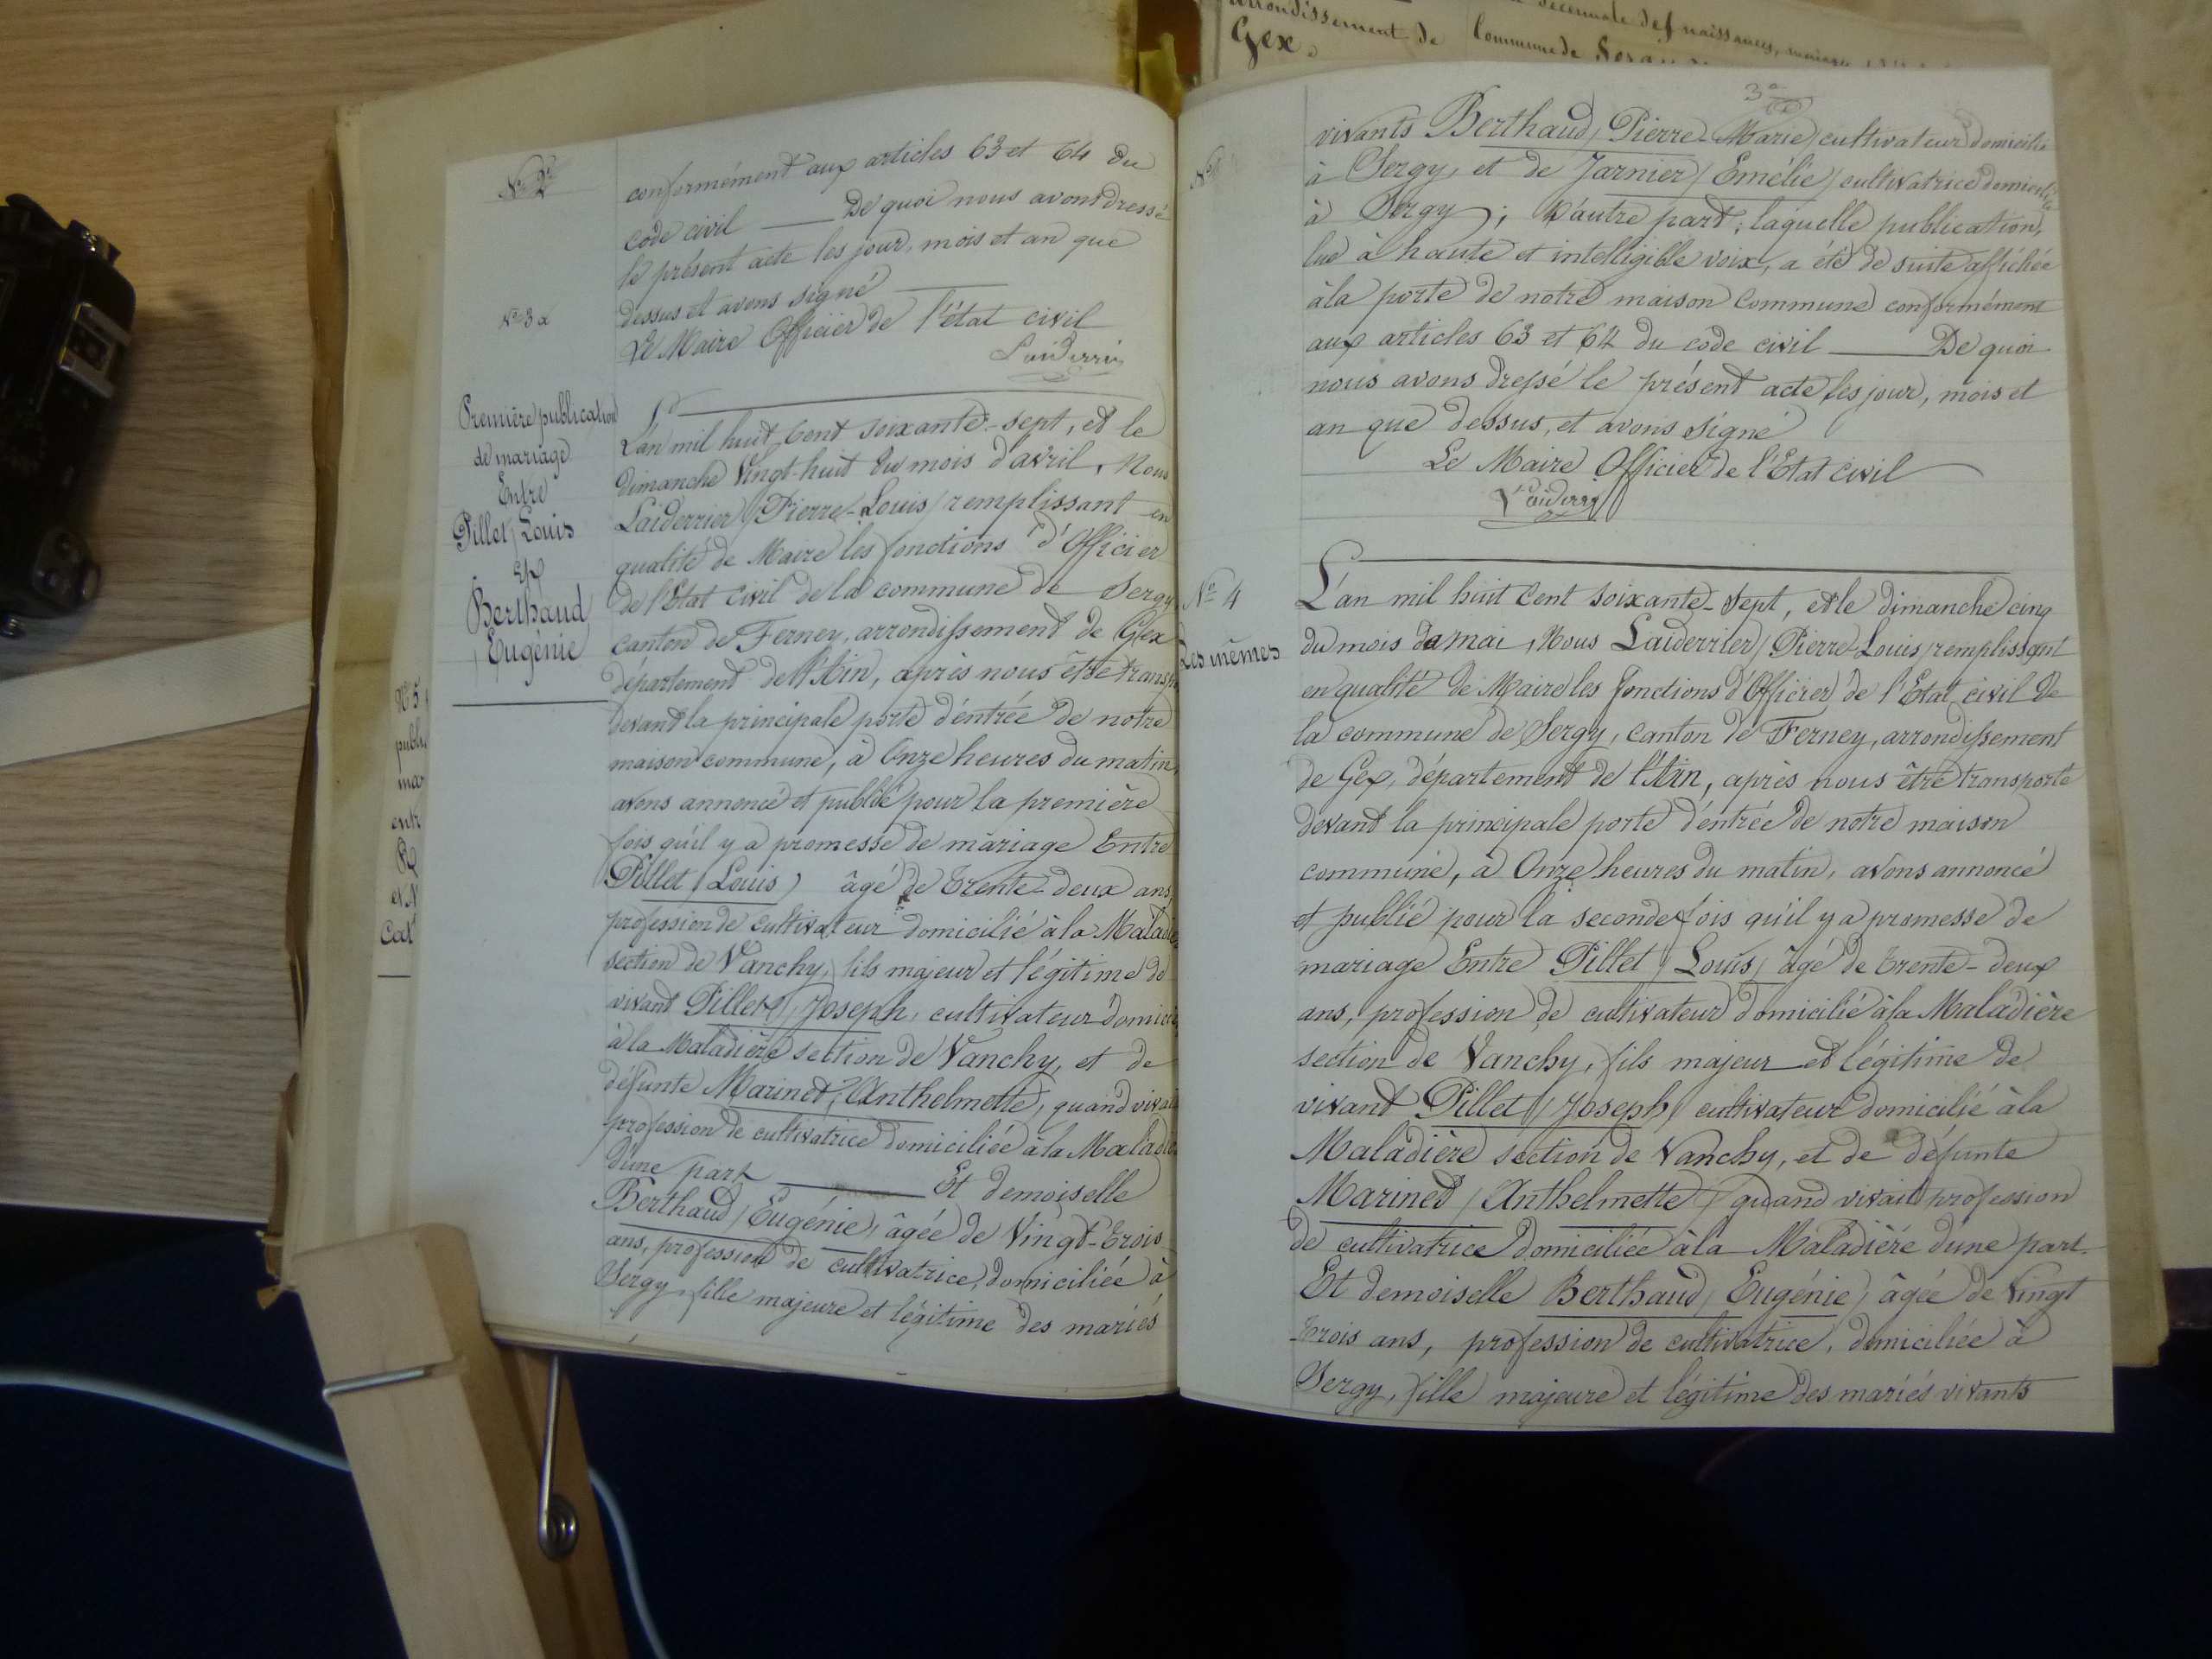 arrondissement de
Gex.
décennale des naissances, mariages
Commune de
conformément aux articles 63 et 64 du
code civil ——— De quoi nous avons dressé
le présent acte les jour, mois et an que
dessus et avons signé ———
Le Maire Officier de l'état civil
Laiderrier
N° 3 a
Première publication
de mariage
Entre
Pillet / Louis
Et
Berthaud
/ Eugénie
L'an mil huit Cent soixante-sept, et le
dimanche Vingt-huit du mois d'avril, Nous
Laiderrier / Pierre-Louis / remplissant en
qualité de Maire les fonctions d'Officier
de l'Etat civil de la commune de Sergy
canton de Ferney, arrondissement de Gex
département de l'Ain, après nous être transp
devant la principale porte d'entrée de notre
maison commune, à Onze heures du matin,
avons annoncé et publié pour la première
fois qu'il y a promesse de mariage Entre
Pillet / Louis / âgé de trente-deux ans,
profession de cultivateur domicilié à la Maladiè
section de Vanchy, fils majeur et légitime de
vivant Pillet / Joseph, cultivateur domici
à la Maladière section de Vanchy, et de
défunte Marinet / Anthelmette, quand vivait
profession de cultivatrice domiciliée à la Maladiè
d'une part ——— Et demoiselle
Berthaud / Eugénie, âgée de Vingt-trois
ans, profession de cultivatrice, domiciliée à
Sergy, fille majeure et légitime des mariés
N° 5
publi
mar
entr
et
Cat
3
vivants Berthaud / Pierre-Marie / cultivateur domicilié
à Sergy, et de Jarnier / Emélie / cultivatrice domiciliée
à Sergy ; d'autre part ; laquelle publication,
lue à haute et intelligible voix, a été de suite affichée
à la porte de notre maison Commune conformément
aux articles 63 et 64 du code civil ——— De quoi
nous avons dressé le présent acte les jour, mois et
an que dessus, et avons signé
Le Maire Officier de l'Etat civil
Laiderrier
N° 4
Les mêmes
L'an mil huit Cent soixante-sept, et le dimanche cinq
du mois de mai, Nous Laiderrier / Pierre-Louis / remplissant
en qualité de Maire les fonctions d'Officier de l'Etat civil de
la commune de Sergy, canton de Ferney, arrondissement
de Gex, département de l'Ain, après nous être transporté
devant la principale porte d'entrée de notre maison
commune, à Onze heures du matin, avons annoncé
et publié pour la seconde fois qu'il y a promesse de
mariage Entre Pillet / Louis / âgé de trente-deux
ans, profession de cultivateur domicilié à la Maladière
section de Vanchy, fils majeur et légitime de
vivant Pillet / Joseph / cultivateur domicilié à la
Maladière section de Vanchy, et de défunte
Marinet / Anthelmette / quand vivait profession
de cultivatrice domiciliée à la Maladière d'une part.
Et demoiselle Berthaud / Eugénie / âgée de Vingt
-trois ans, profession de cultivatrice, domiciliée à
Sergy, fille majeure et légitime des mariés vivants